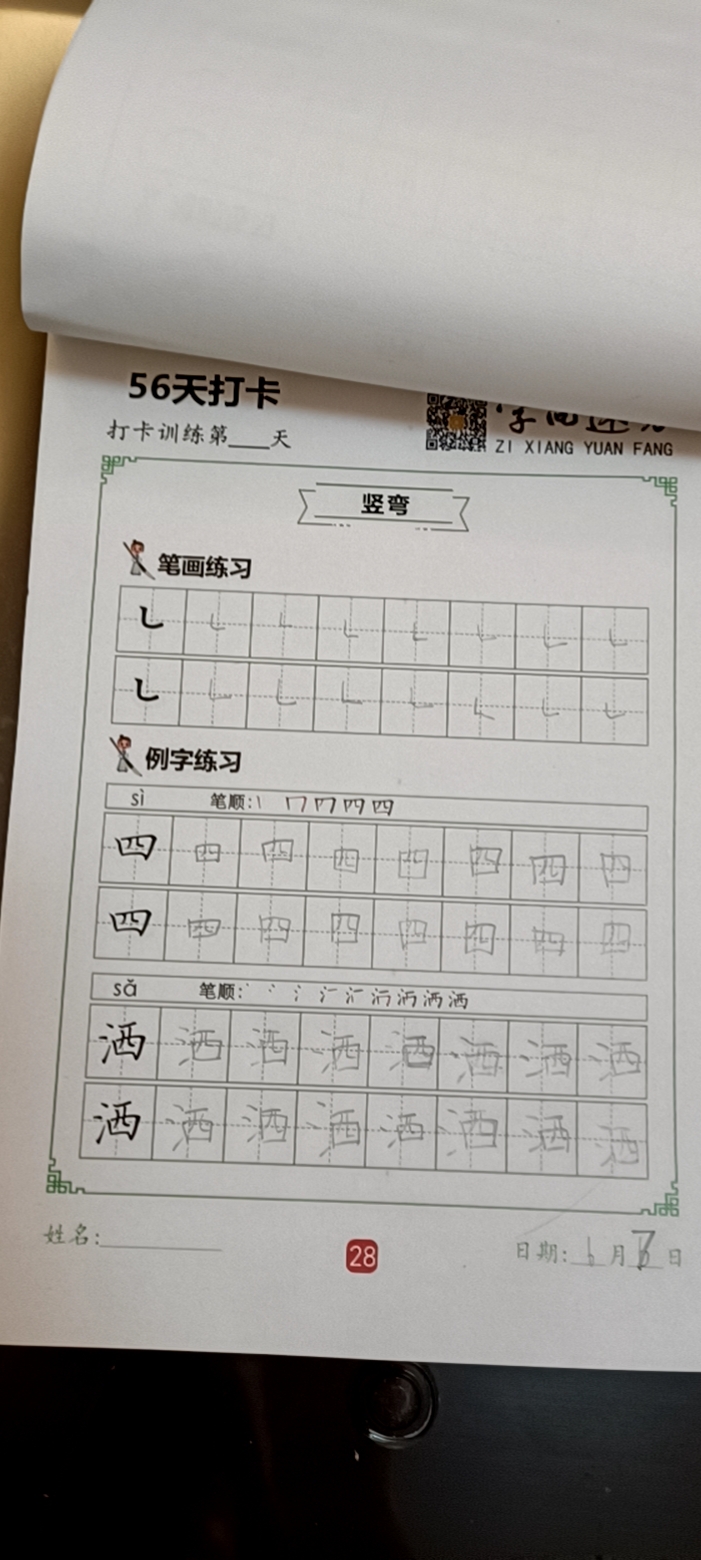 56天打卡
打卡训练第___天
ZI XIANG YUAN FANG
竖弯
笔画练习
例字练习
sì 笔顺:
四 四 四 四 四 四 四 四
四 四 四 四 四 四 四 四
sǎ 笔顺:
洒 洒 洒 洒 洒 洒 洒 洒
洒 洒 洒 洒 洒 洒 洒 洒
姓名:
28
日期: 6月7日